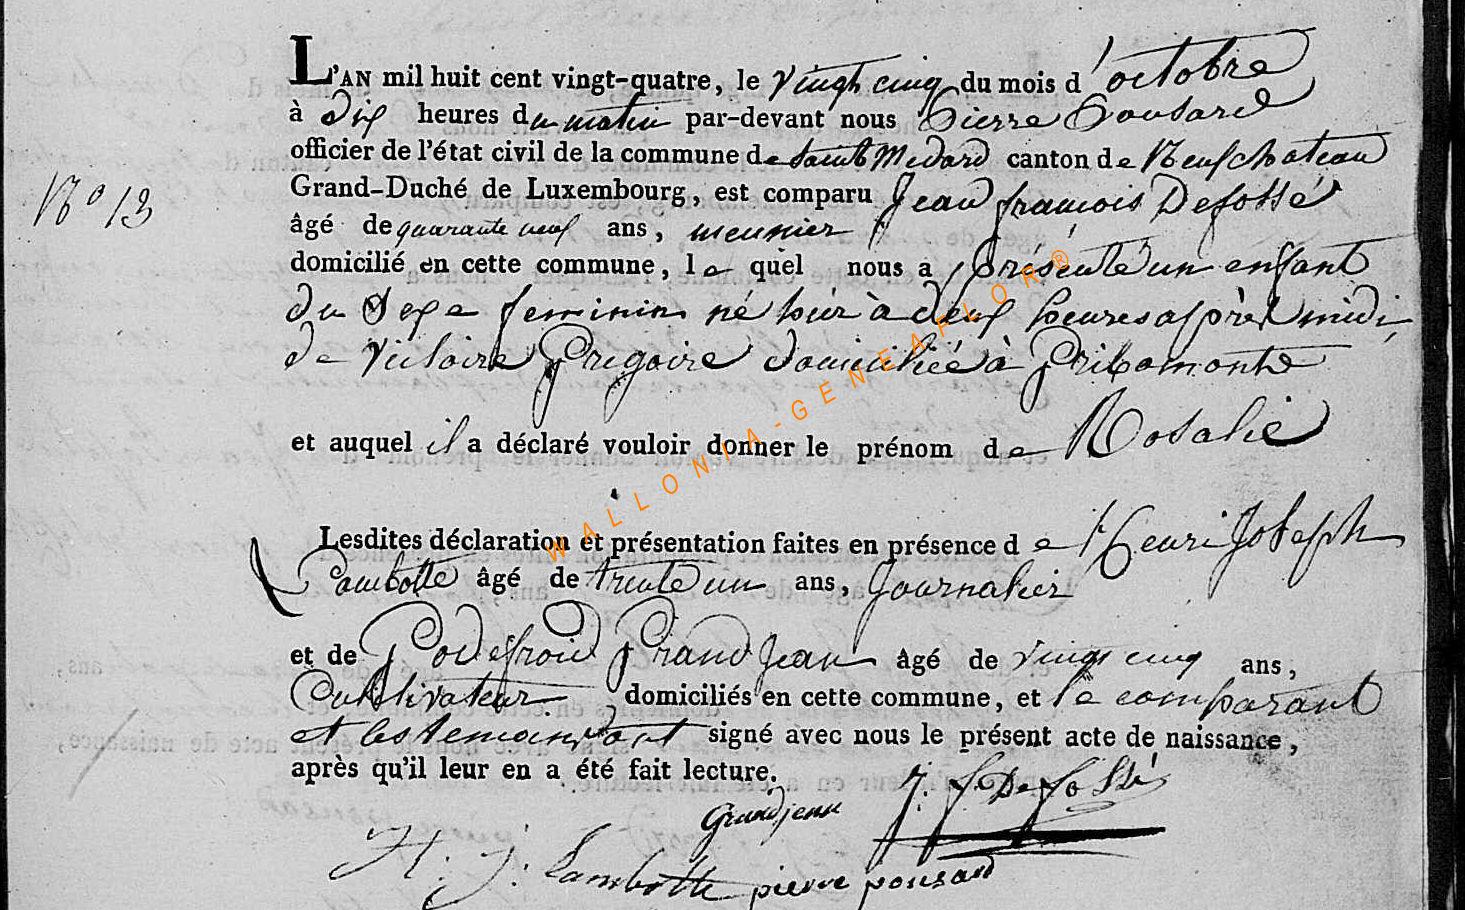 L'AN mil huit cent vingt-quatre, le vingt cinq du mois d'octobre
à dix heures du matin par-devant nous Pierre Pousard
officier de l'état civil de la commune de saint Medard canton de Neufchateau
Nº 13
Grand-Duché de Luxembourg, est comparu Jean francois Defossé
âgé de quarante neuf ans, meunier
domicilié en cette commune, le quel nous a présenté un enfant
du Sexe feminin né hier à deux heures après midi,
de Victoire Grégoire domiciliée à Gribomont
et auquel il a déclaré vouloir donner le prénom de Rosalie
Lesdites déclaration et présentation faites en présence de Henri Joseph
Lambotte âgé de trente un ans, Journalier
et de Godefroid Grand Jean âgé de vingt cinq ans,
Cultivateur domiciliés en cette commune, et le comparant
et les temoins ont signé avec nous le présent acte de naissance,
après qu'il leur en a été fait lecture.
Grandjean J. f. Defossé
H. J. Lambotte pierre pousard
WALLONIA-GENEAFLOR®